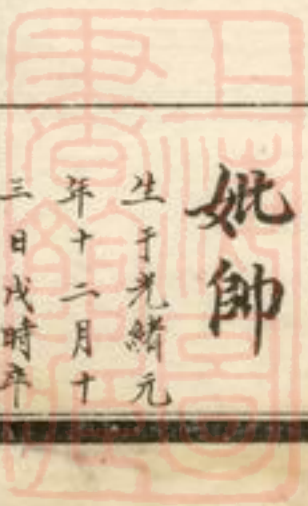 妣帥
生于光緒元
年十二月十
三日戌時卒